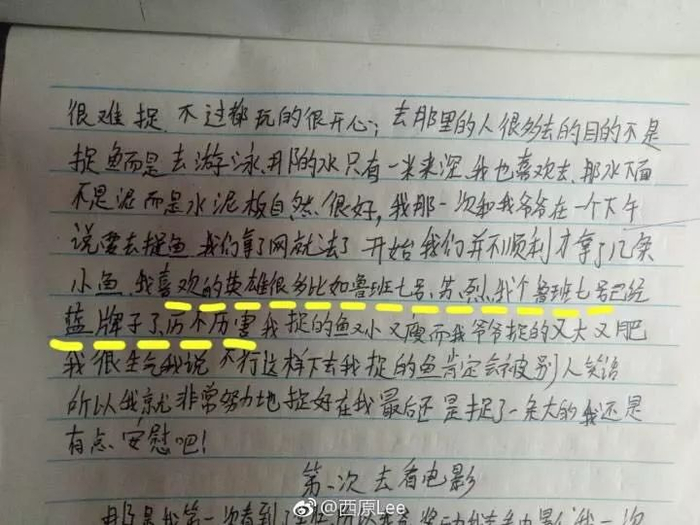 很难捉,不过都玩的很开心;去那里的人很多去的目的不是
捉鱼而是去游泳,那的水只有一米来深.我也喜欢去、那水下面
不是泥而是水泥板自然很好,我那一次和我爷爷在一个下午
说要去捉鱼,我们拿了网就去了 开始我们并不顺利才拿了几条
小鱼、我喜欢的英雄很多比如鲁班七号、苏烈,我个鲁班七号已经
蓝牌子了、历不历害 我捉的鱼又小又瘦而我爷爷捉的又大又肥
我很生气我说 不行这样下去我捉的鱼肯定会被别人笑话
所以我就非常努力地捉好在我最后还是捉了一条大的我还是
有点安慰吧!
第一次去看电影
那是我第一次看到了
@西原Lee